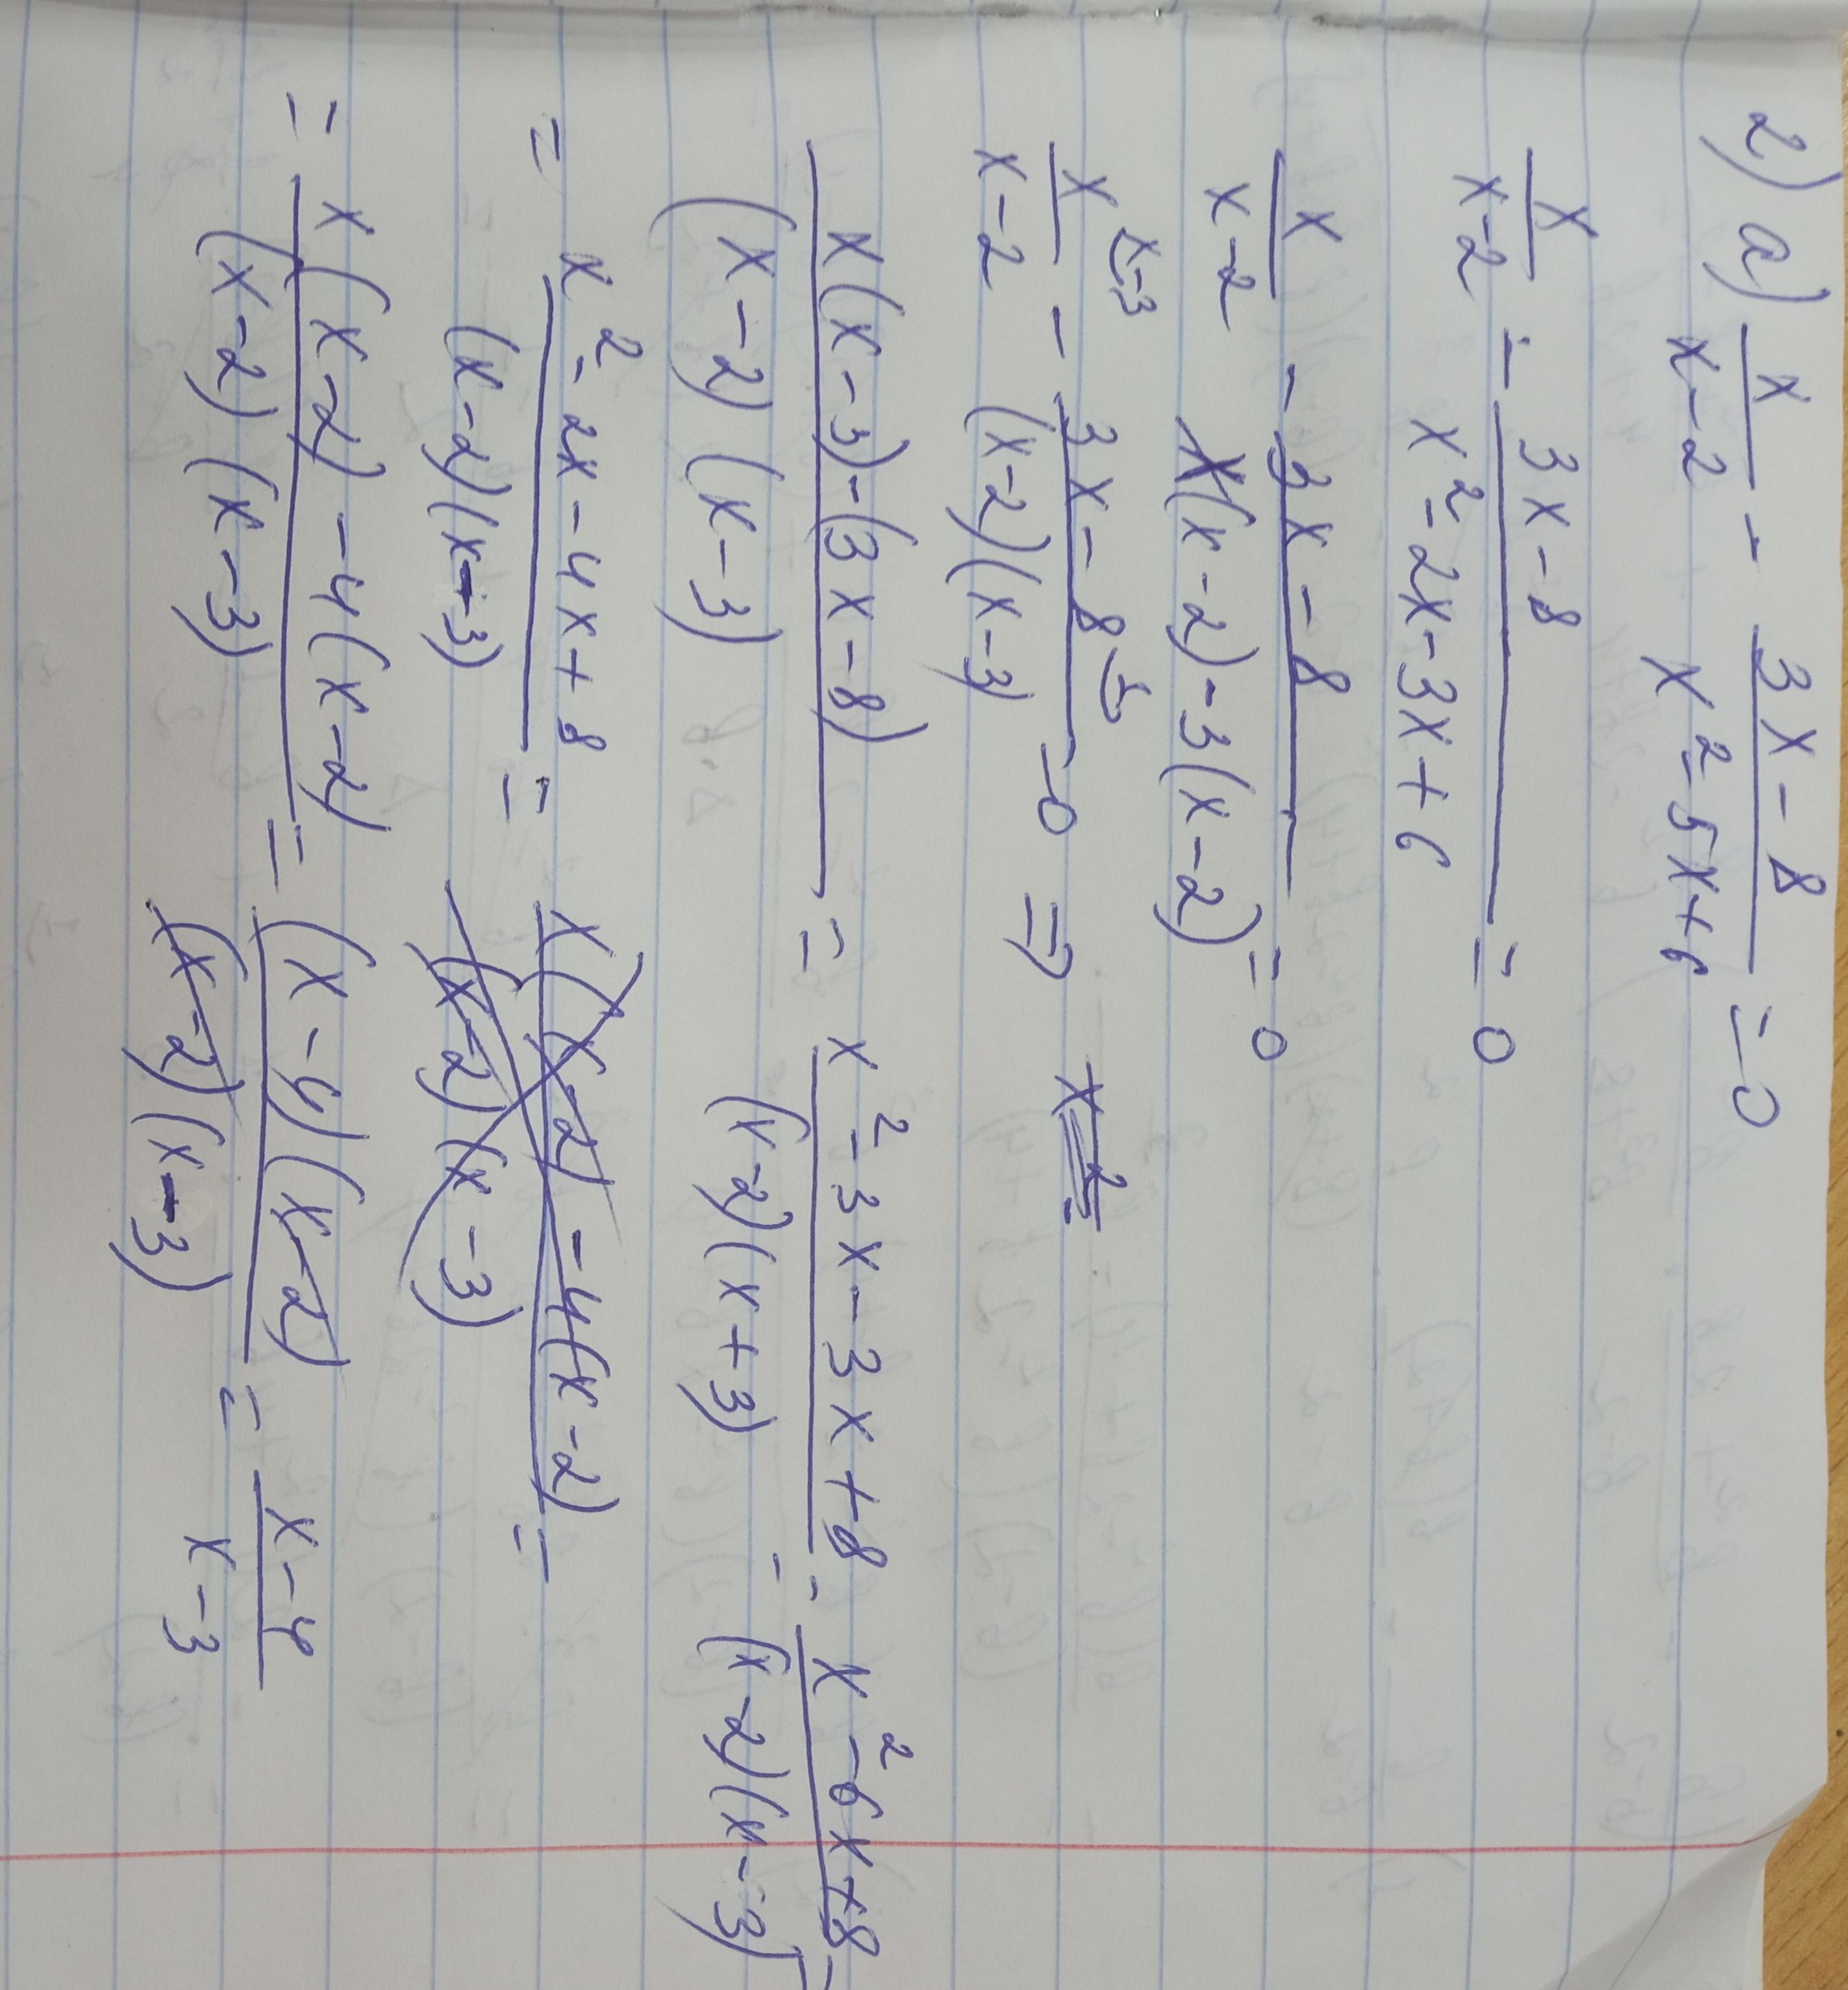 2) a) x/(x-2) - (3x-8)/(x²-5x+6) = 0
x/(x-2) - (3x-8)/(x²-2x-3x+6) = 0
x/(x-2) - (3x-8)/(x(x-2)-3(x-2)) = 0
x^(x-3)/(x-2) - (3x-8)^(1)/((x-2)(x-3)) = 0 ⇒
(x(x-3)-(3x-8))/((x-2)(x-3)) = (x²-3x-3x+8)/((x-2)(x+3)) = (x²-6x+8)/((x-2)(x-3)) =
= (x²-2x-4x+8)/((x-2)(x-3)) = (x(x-2)-4(x-2))/((x-2)(x-3)) =
= (x(x-2)-4(x-2))/((x-2)(x-3)) = ((x-4)(x-2))/((x-2)(x-3)) = (x-4)/(x-3)